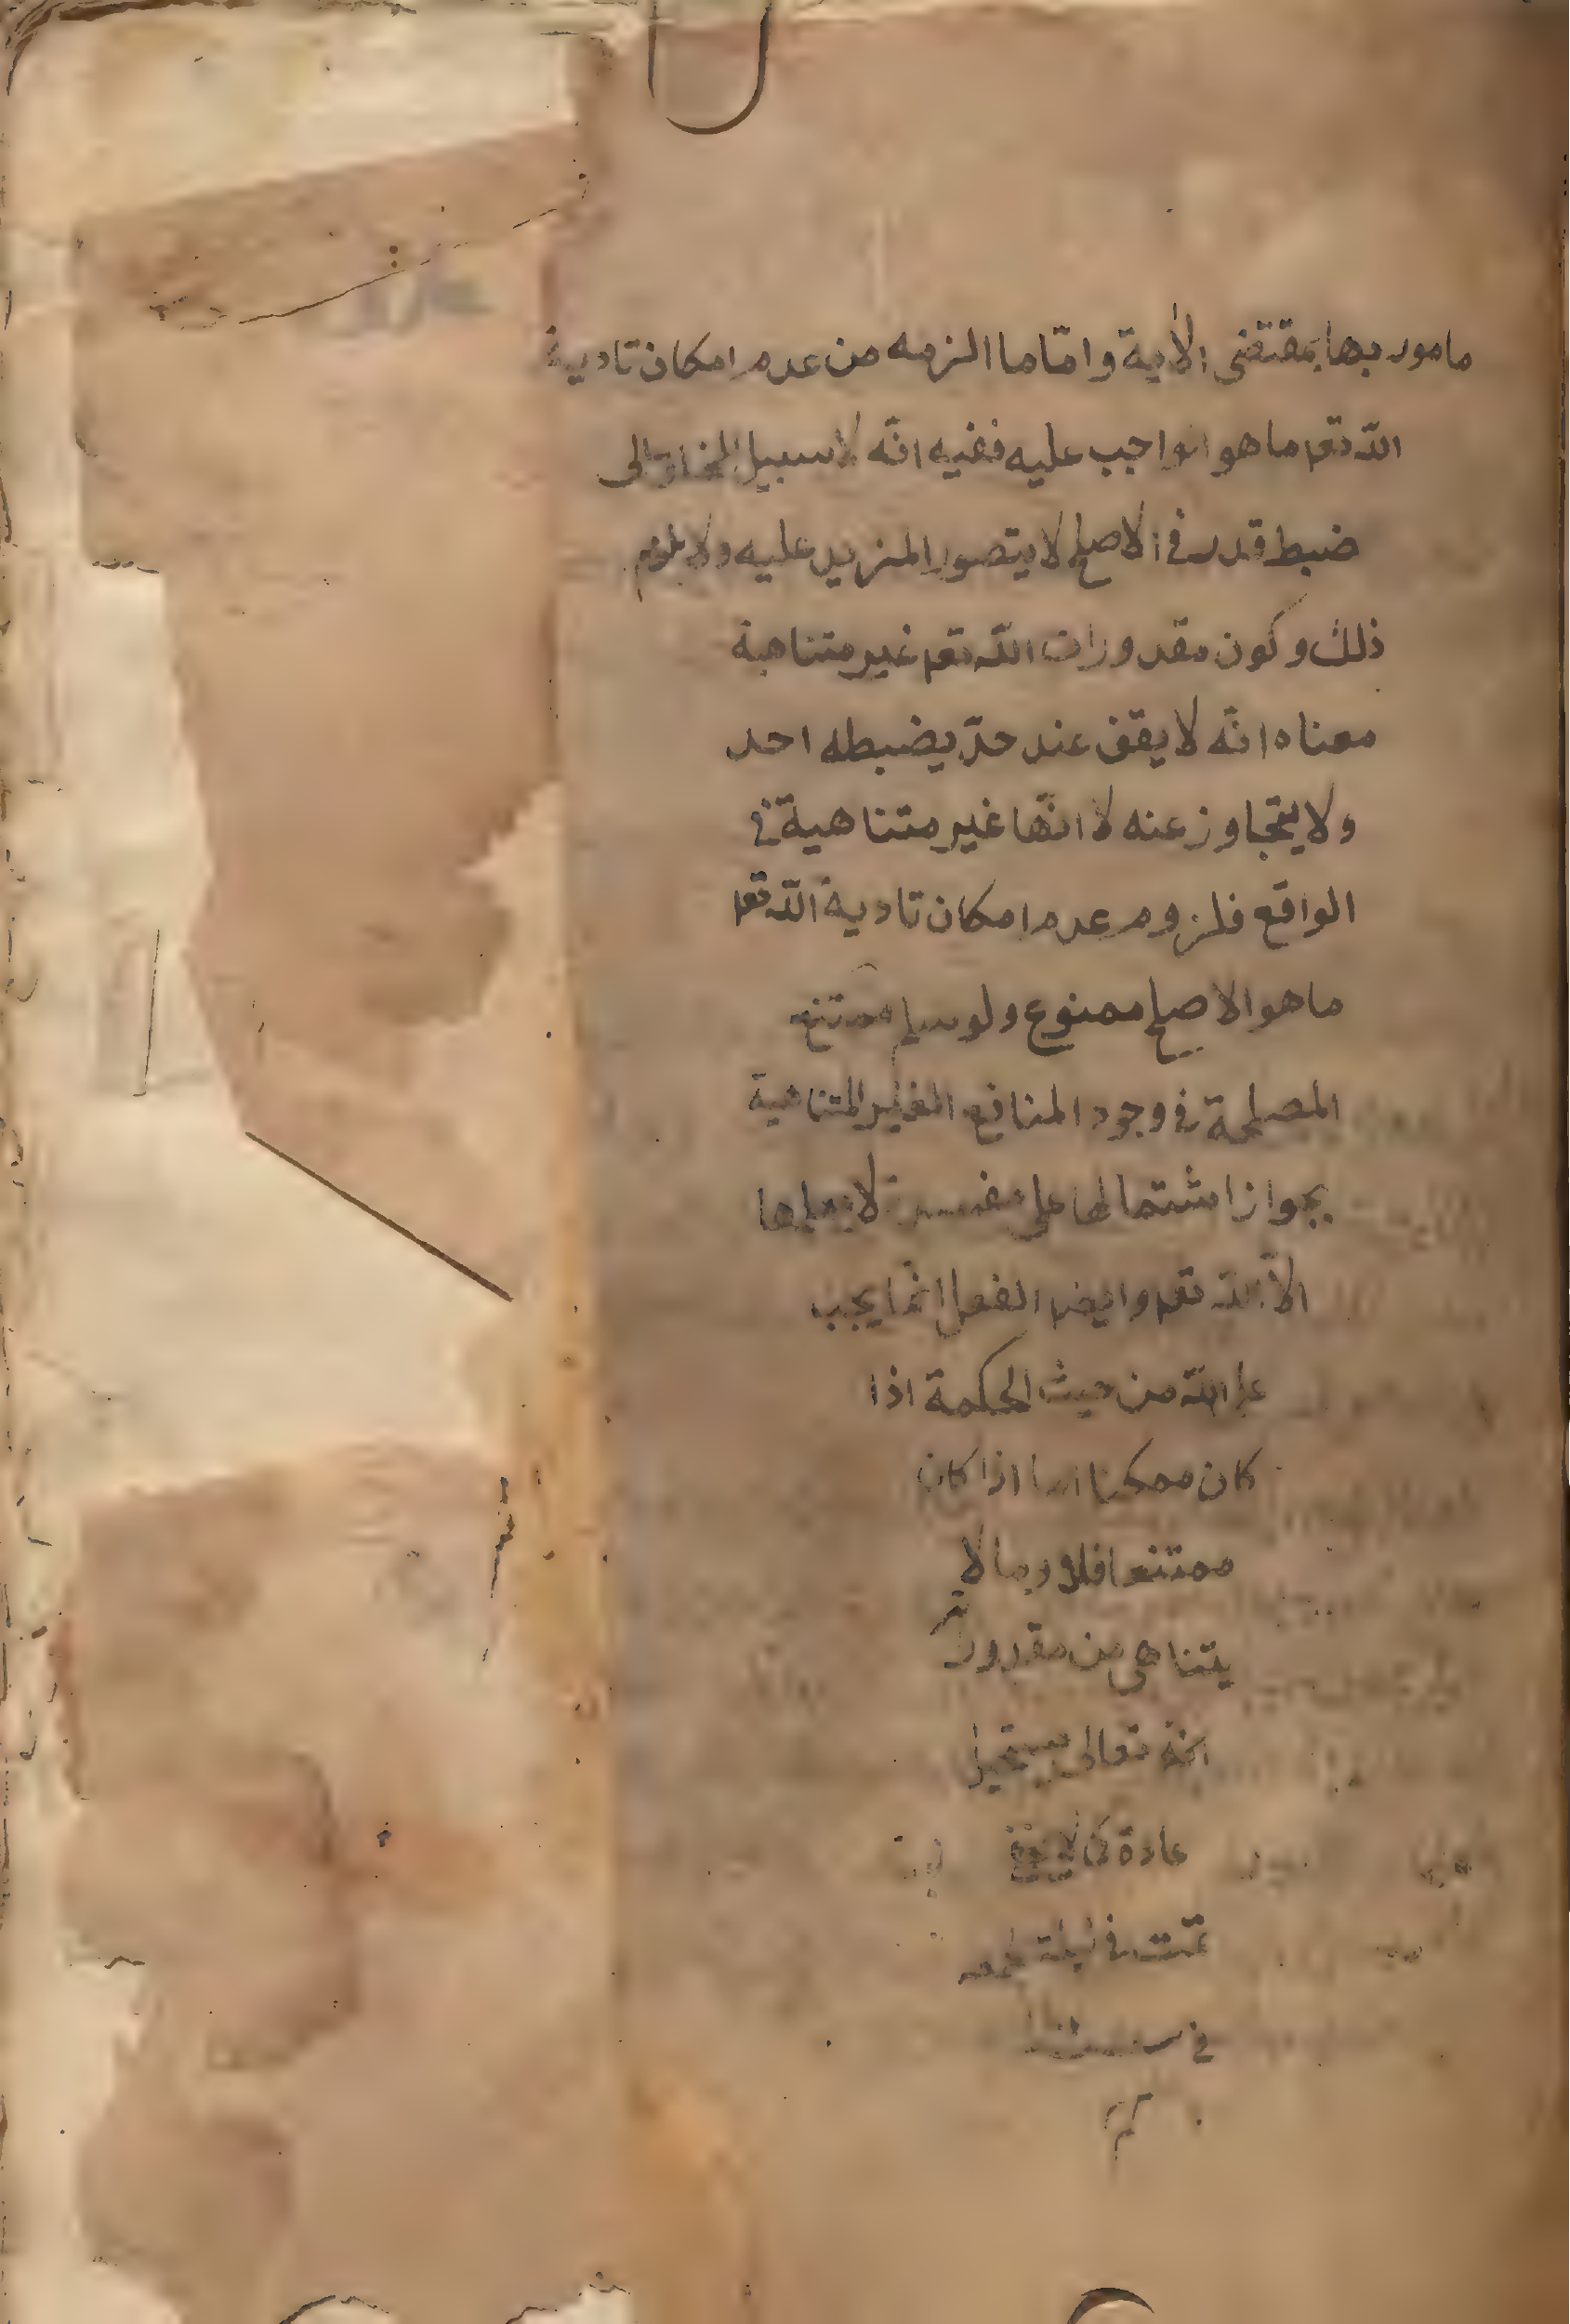 مامور بها بمقتضى الاية وامّا ما الزمه من عدم امكان تادية
اللّه تعم ما هو الواجب عليه ففيه انّه لا سبيل الى
ضبط قدر فى الاصلح لا يتصور المزيد عليه ولا يلزم
ذلك وكون مقدورات اللّه تعم غير متناهية
معناه انّه لا يقف عند حدّ يضبطه احد
ولا يتجاوز عنه لا انّها غير متناهية فى
الواقع فلزوم عدم امكان تادية اللّه تعم
ما هو الاصلح ممنوع ولو سلم
المصلحة فى وجود المنافع الغير المتناهية
بجواز اشتمالها على مفسدة لا يعلمها
الّا اللّه تعم وايضا الفعل انّما يجب
على اللّه من حيث الحكمة اذا
كان ممكنا اما اذا كان
ممتنعا فلا وما لا
يتناهى من مقدور
تعالى مستحيل
عادة كما لا يخفى
تمّت فى ليلة
فى